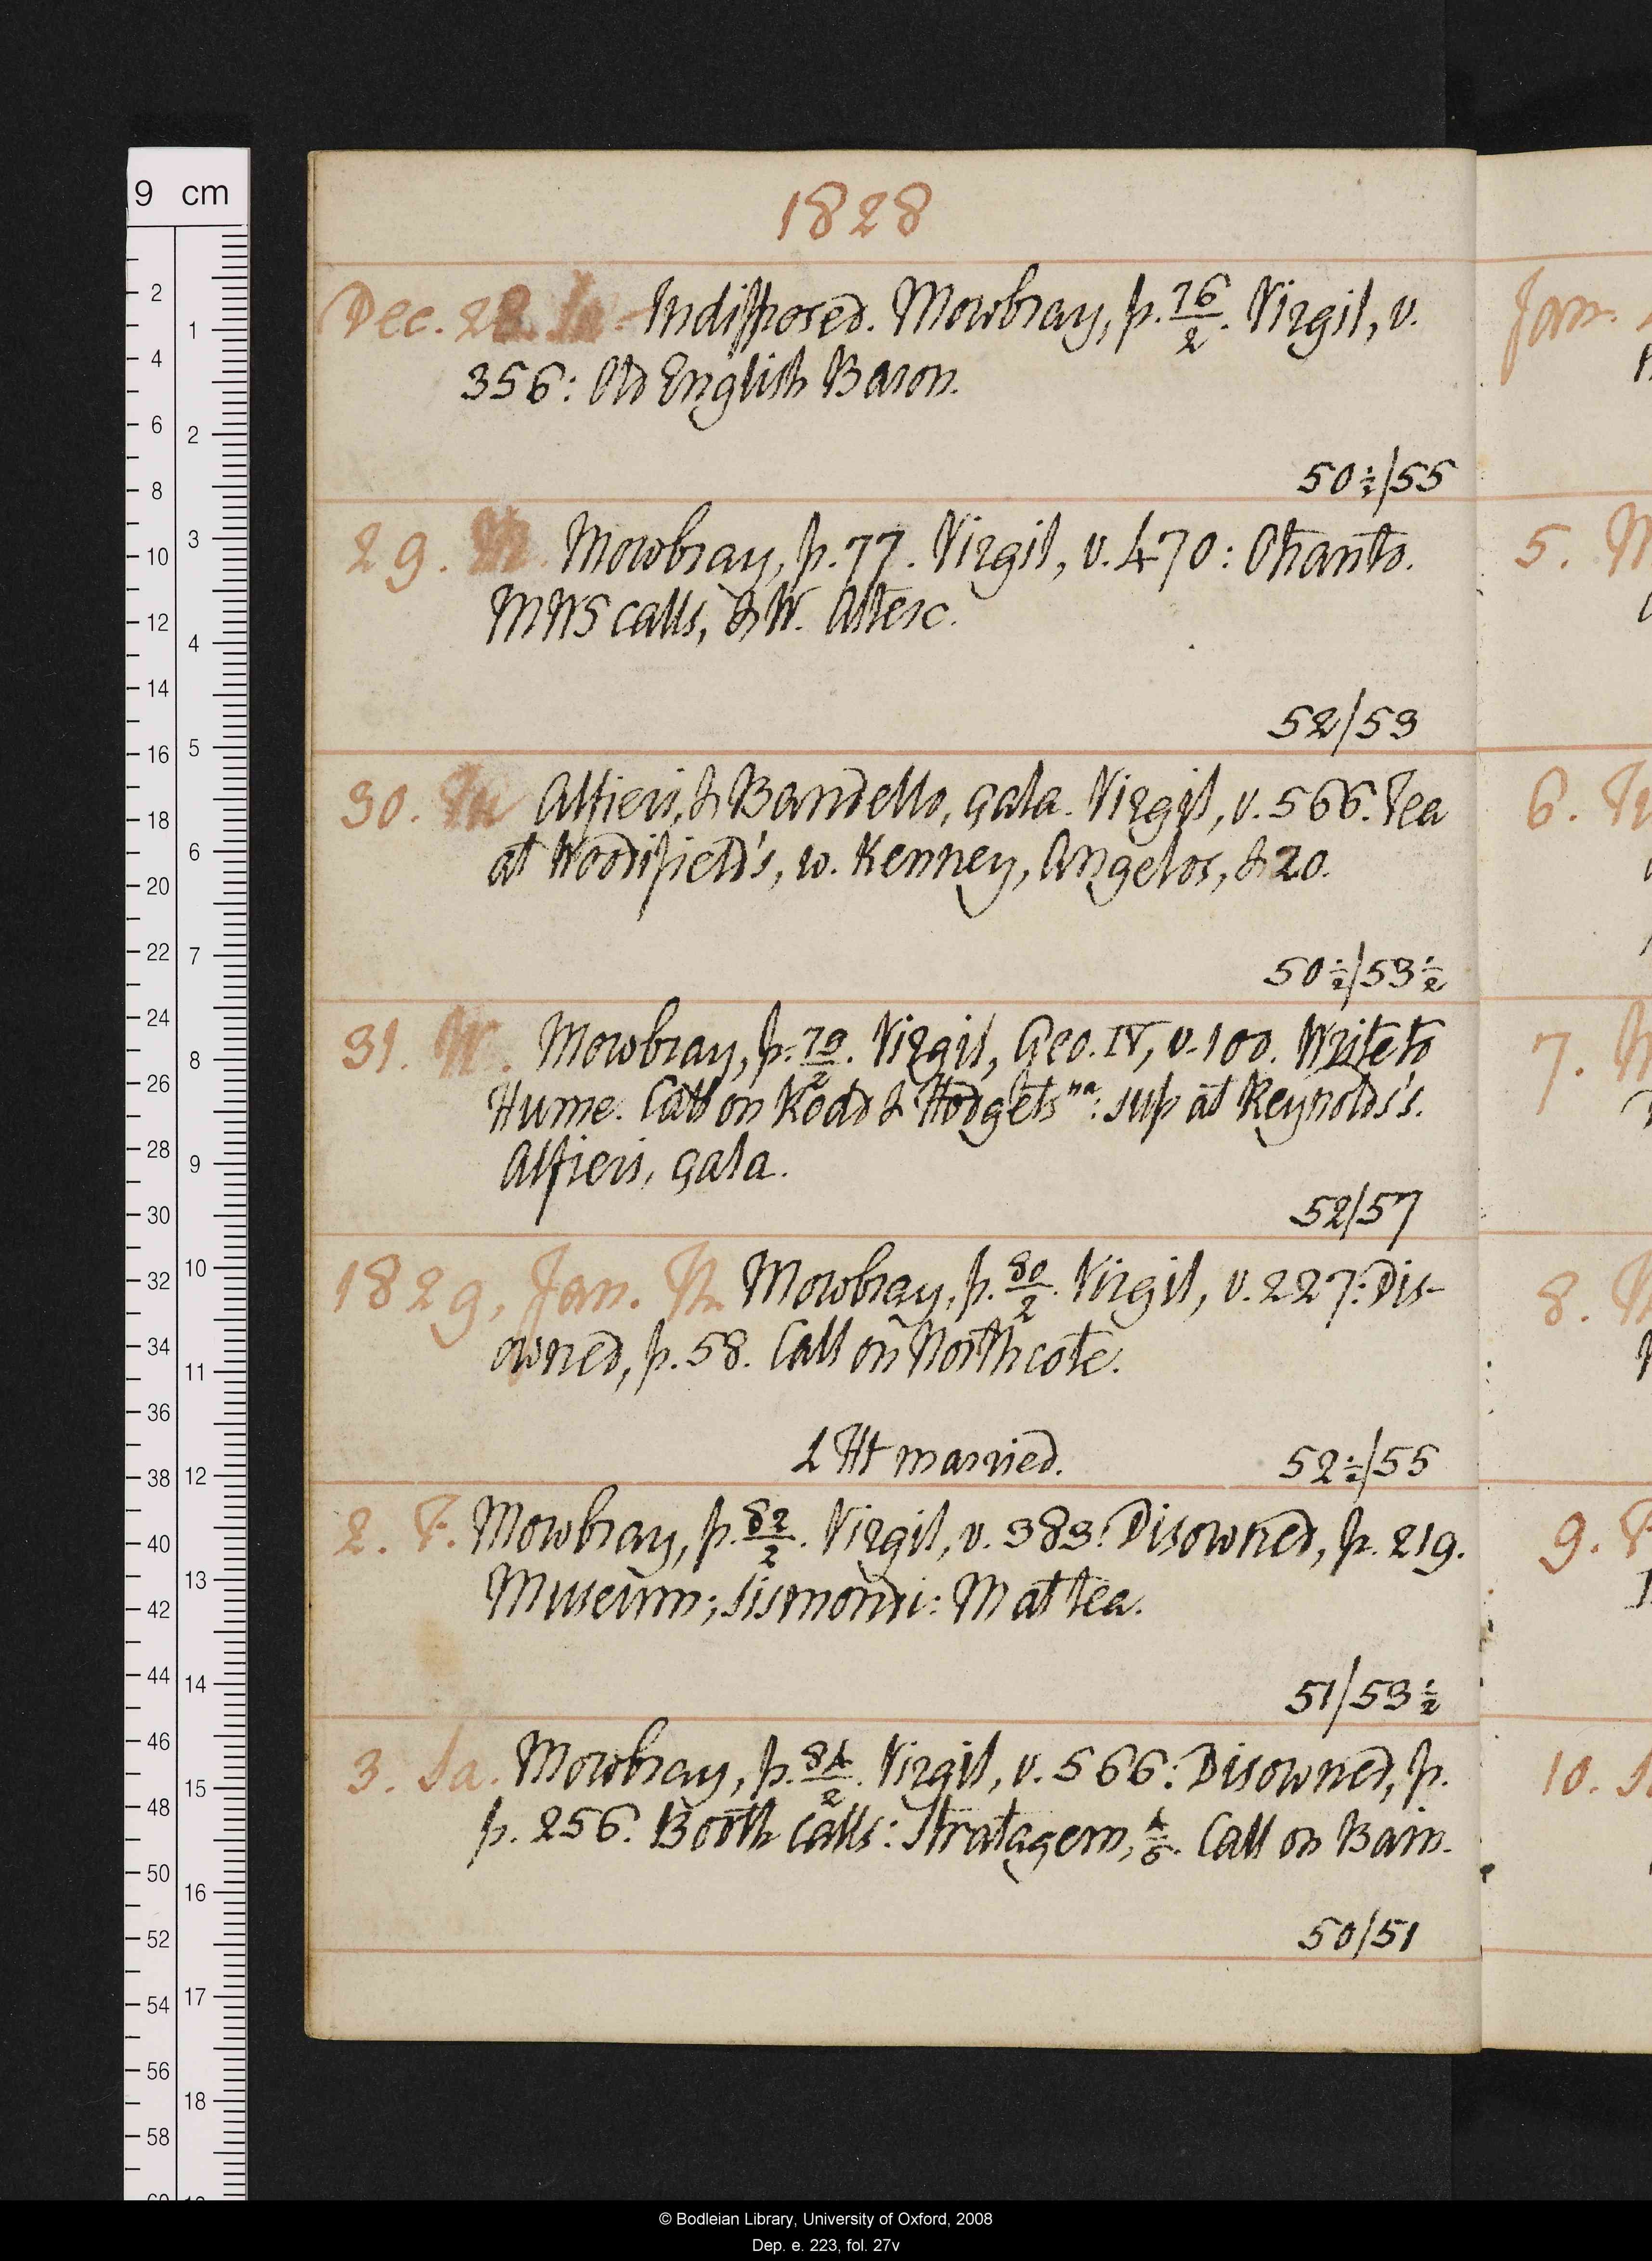 1828
Dec. 28. Su. Indisposed. Mowbray, p. 76/2. Virgil, v.
356: Old English Baron.
50 1/2/55
29. M. Mowbray, p. 77. Virgil, v. 470: Otranto.
MWS calls, & W. Altesc.
52/53
30. Tu Alfieri, & Bandello, çala. Virgil, v. 566. Tea
at Woodifield's, w. Kenney, Angelos, & 20.
50 1/2/53 1/2
31. W. Mowbray, p. 79/2. Virgil, Geo. IV, v. 100. Write to
Hume. Call on Rodd & Hodgets na: sup at Reynolds's.
Alfieri, çala.
52/57
1829, Jan. Th. Mowbray, p. 80/2. Virgil, v. 227: Dis-
owned, p. 58. Call on Northcote.
L Ht married.
52 1/2/55
2. F. Mowbray, p. 82/2. Virgil, v. 383: Disowned, p. 219.
Museum; Sismondi: M at tea.
51/53 1/2
3. Sa. Mowbray, p. 84/2. Virgil, v. 566: Disowned, p.
p. 256. Booth calls: Stratagem, 4/5. Call on Bain.
50/51
Jan.
5. M
6. Tu
7. W
8.
9. F
10. S
9 cm
© Bodleian Library, University of Oxford, 2008
Dep. e. 223, fol. 27v